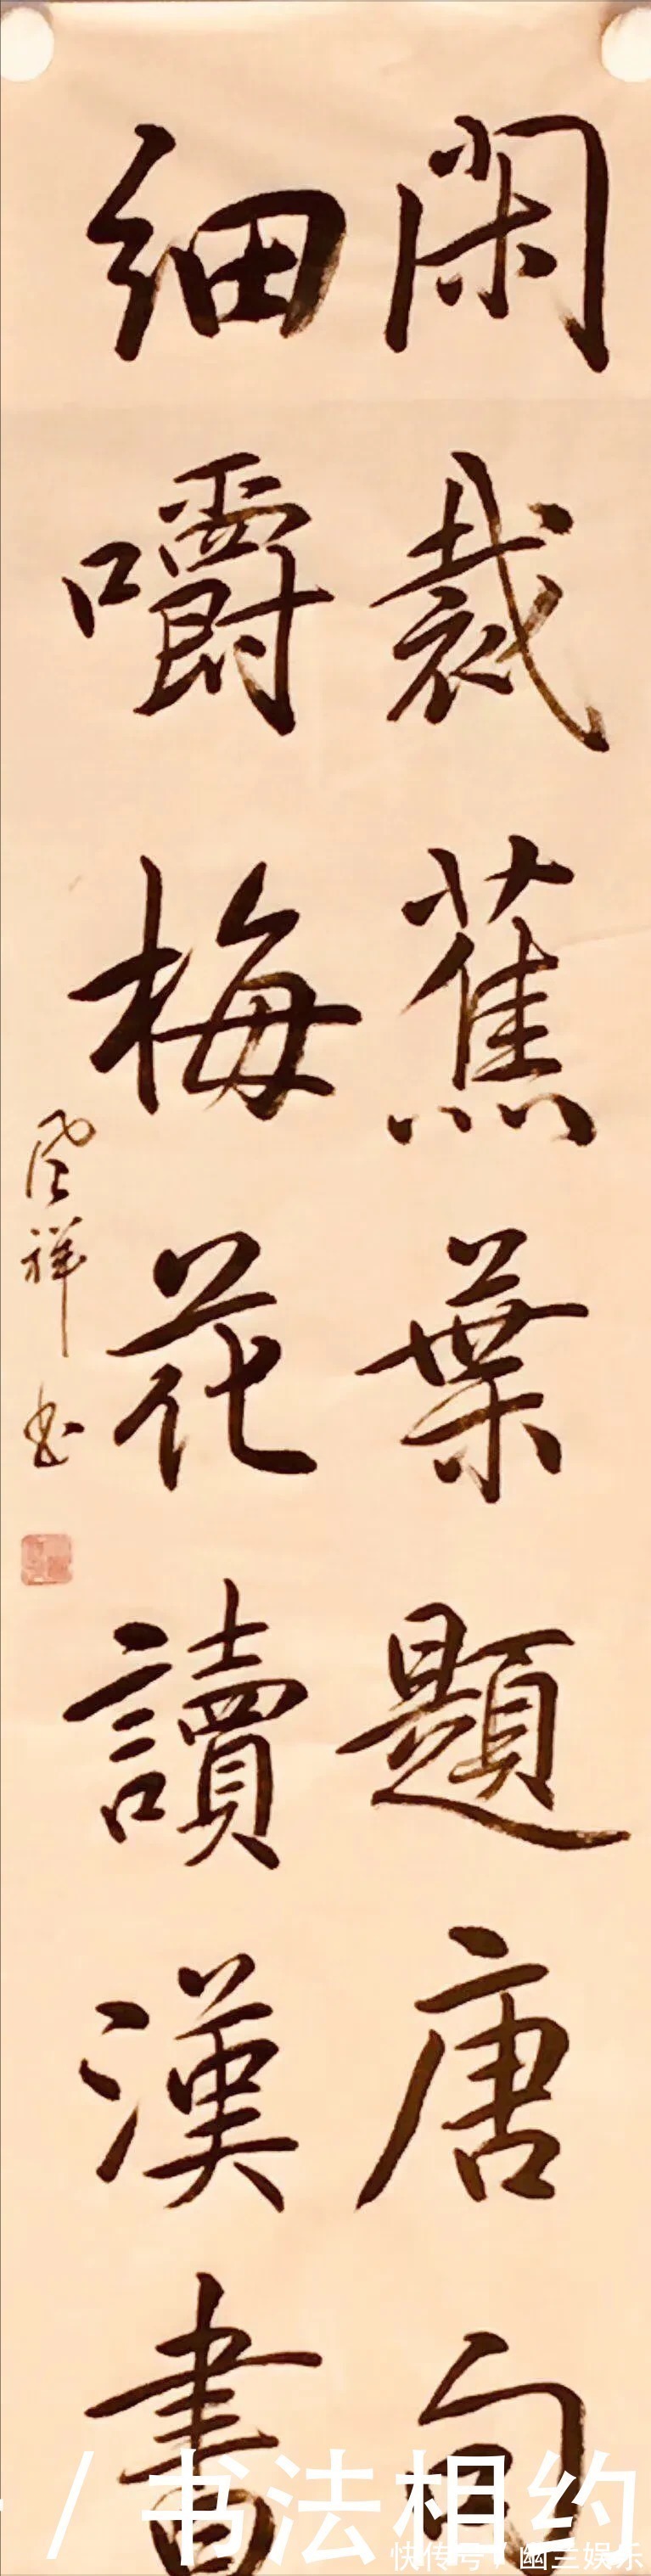 閑裁蕉葉題唐句
細嚼梅花讀漢書
风祥书
/书法相约
快传号/幽兰娱乐